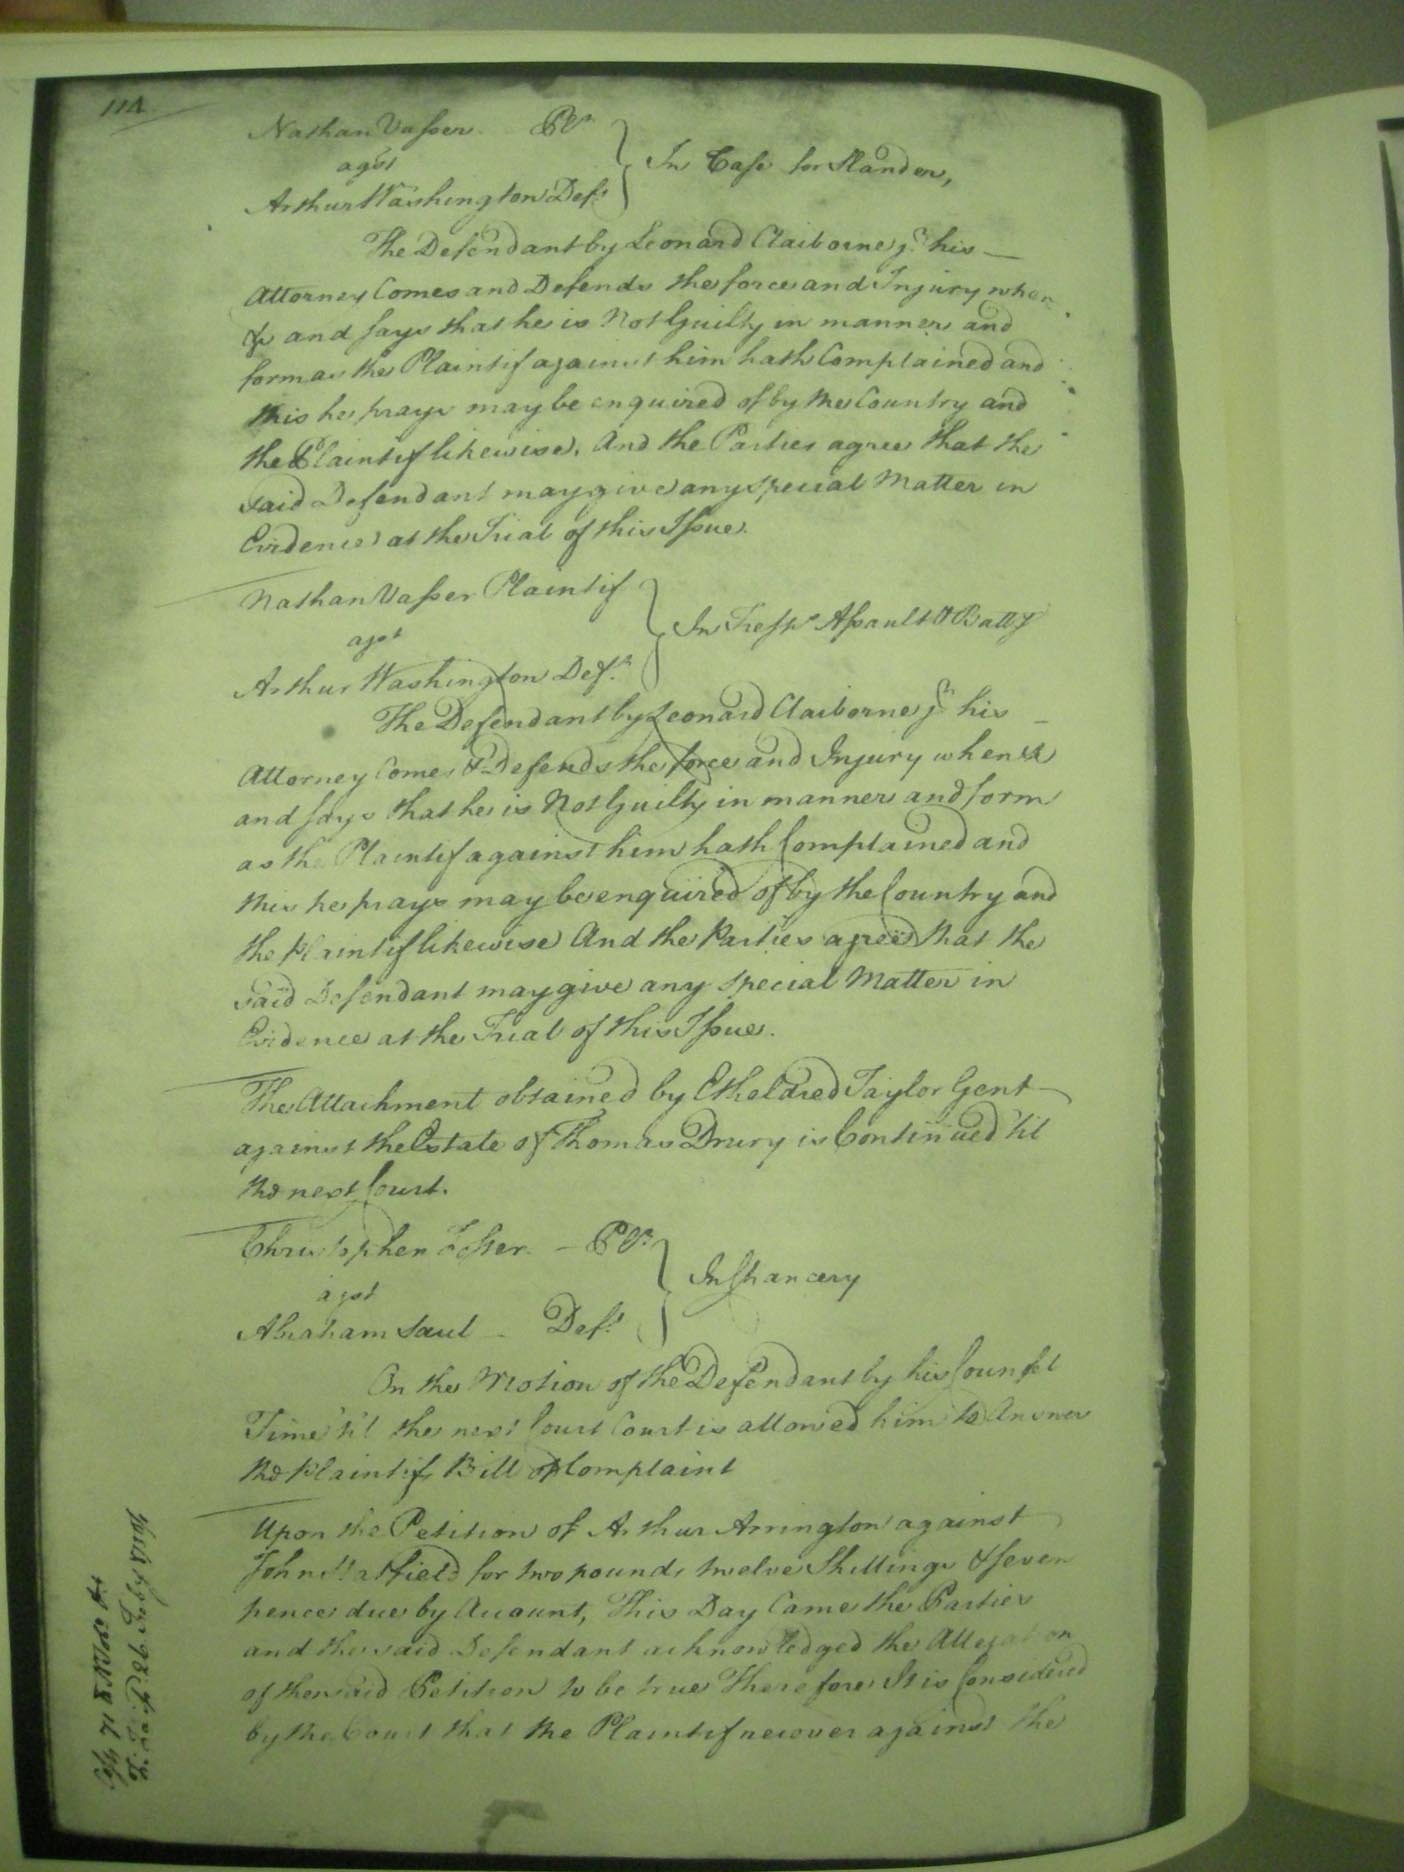 114
Nathan Vasser Plt
agst
Arthur Washington Deft
In Case for Slander,
The Defendant by Leonard Claiborne jr his
Attorney Comes and Defends the force and Injury when
&c and says that he is Not Guilty in manner and
form as the Plaintif against him hath Complained and
this he prays may be enquired of by the Country and
the Plaintif likewise, And the Parties agree that the
said Defendant may give any special Matter in
Evidence at the Trial of this Issue.
Nathan Vasser Plaintif
agst
Arthur Washington Deft
In Tresps Assault & Batty
The Defendant by Leonard Claiborne jr his
Attorney Comes & Defends the force and Injury when &c
and says that he is Not Guilty in manner and form
as the Plaintif against him hath Complained and
this he prays may be enquired of by the Country and
the Plaintif likewise And the Parties agree that the
said Defendant may give any special Matter in
Evidence at the Trial of this Issue.
The Attachment obtained by Etheldred Taylor Gent
against the Estate of Thomas Drury is Continued 'til
the next Court.
Christopher Plt
agst
Abraham Saul Deft
In Chancery
On the Motion of the Defendant by his Counsel
Time 'til the next Court Court is allowed him to Answer
the Plaintifs Bill of Complaint
Upon the Petition of Arthur Arrington against
John Hatfield for two pounds twelve Shillings & seven
pence due by Account, This Day Came the Parties
and the said Defendant acknowledged the Allegation
of the said Petition to be true Therefore It is Considered
by the Court that the Plaintif recover against the